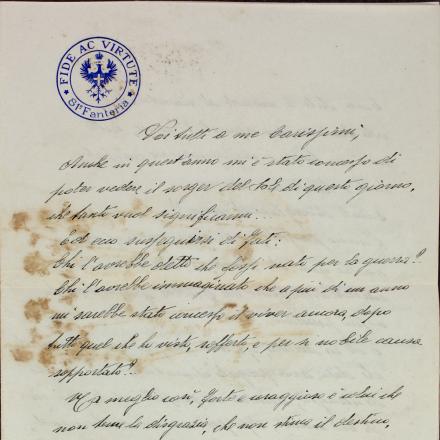 FIDE AC VIRTUTE
81° Fanteria
Voi tutti a me Carissimi,
Anche in quest'anno mi è stato concesso di
poter vedere il sorger del Sol di questo giorno,
che tanto vuol significarmi...
Ed ecco susseguirsi di fati:
Chi l'avrebbe detto che fossi nato per la guerra?
Chi l'avrebbe immaginato che a più di un anno
mi sarebbe stato concesso il viver ancora, dopo
tutto quel che ho visto, sofferto, e per sì nobile causa
sopportato?
Ma meglio così, forte e coraggioso è colui che
non teme la disgrazia, che non stima il destino,